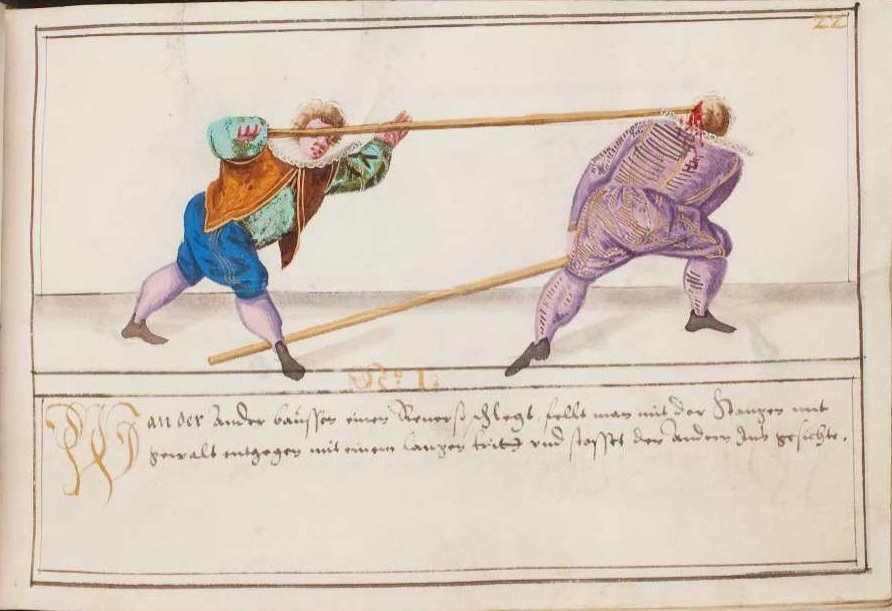 22
No 12
Wan der Ander baussen einen Reverso schlegt, fellt man mit der Stangen mit
gewalt entgegen mit einem langen tritt vnd stosset den Andern Ins gesichte.